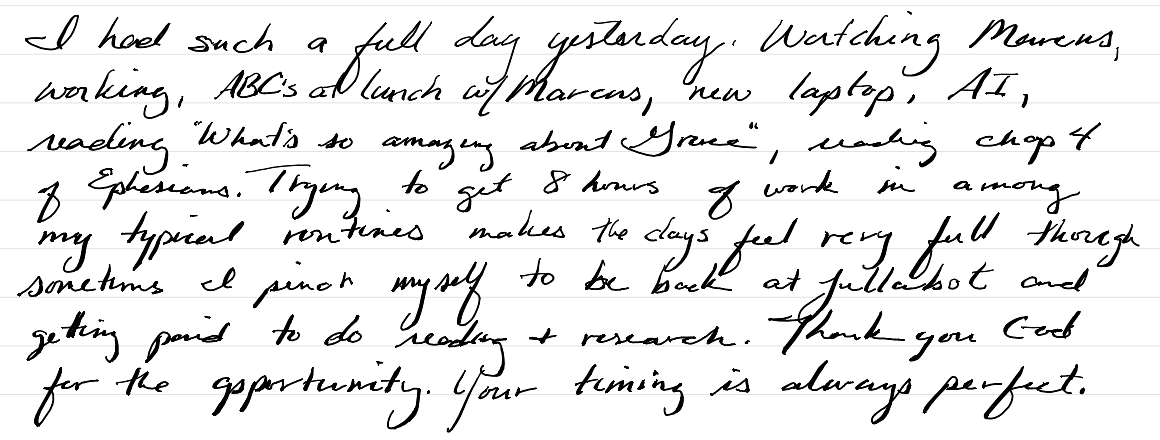 I had such a full day yesterday. Watching Marcus,
working, ABC's at lunch w/ Marcus, new laptop, AI,
reading "What's so amazing about Grace", reading chap 4
of Ephesians. Trying to get 8 hours of work in among
my typical routines makes the days feel very full though
sometims I pinch myself to be back at fullabot and
getting paid to do reading + research. Thank you God
for the opportunity. Your timing is always perfect.